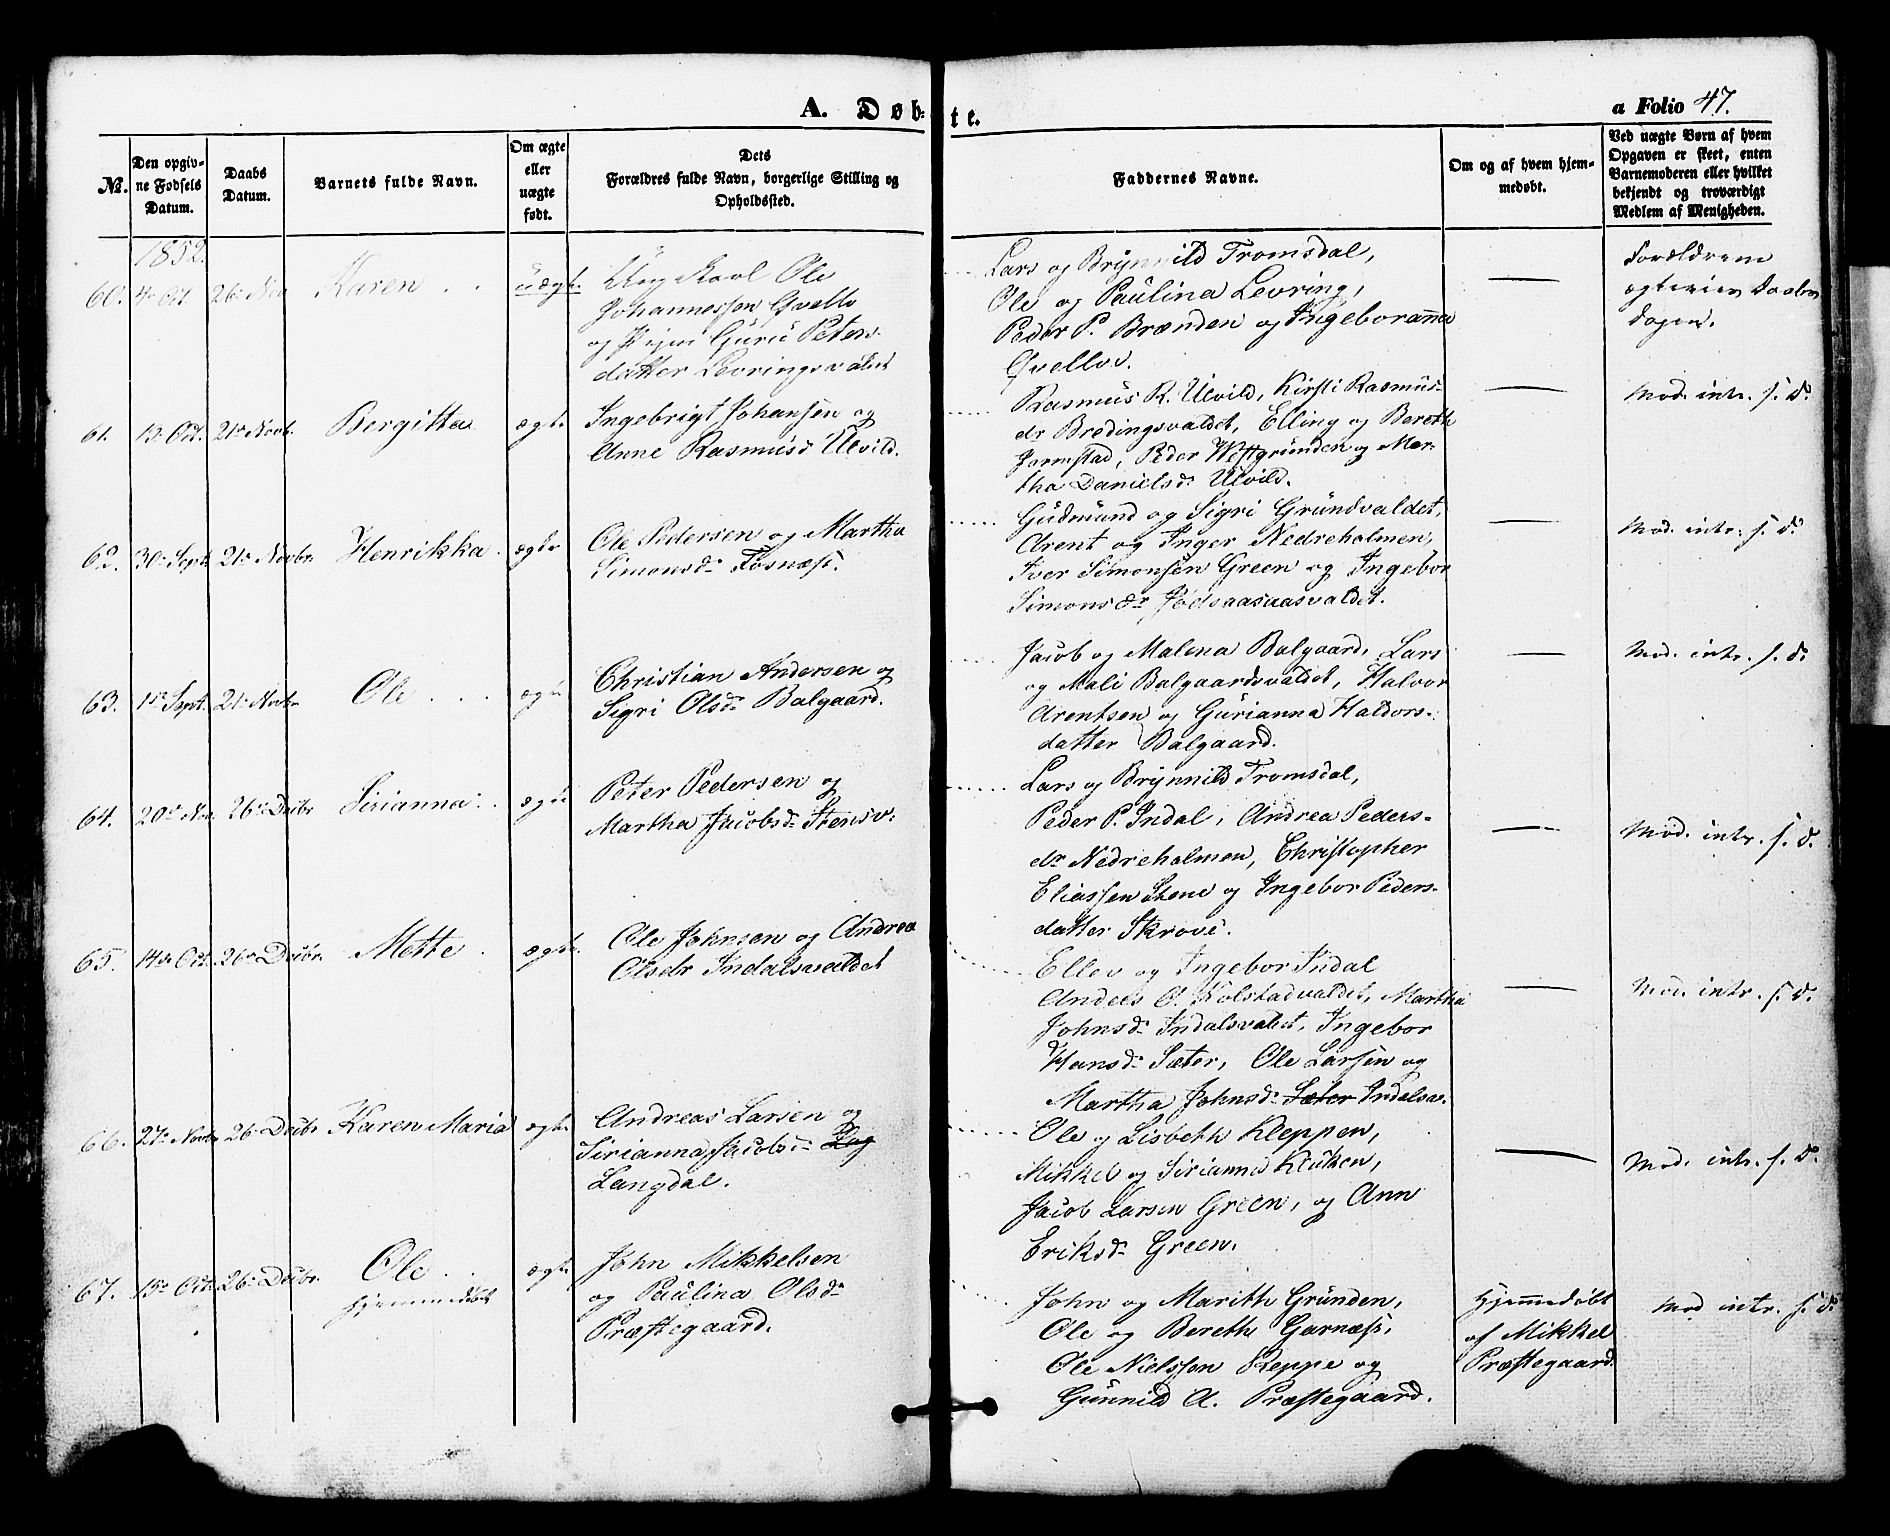 A. Døb-
te.
a Folio 47.
No.
Den opgiv-
ne Fødsels
Datum.
Daabs
Datum.
Barnets fulde Navn.
Om ægte
eller
uægte
født.
Dets
Forældres fulde Navn, borgerlige Stilling og
Opholdssted.
Faddernes Navne.
Om og af hvem hjem-
medøbt.
Ved uægte Børn af hvem
Opgaven er skeet, enten
Barnemoderen eller hvilket
bekjendt og troværdigt
Medlem af Menigheden.
1852.
60. 4de Oct. 26de Nov Karen uægt.
Ungkarl Ole
Johannessen Qvello
og Pigen Guru Peters-
datter Levringsvaldet
Lars og Brynnild Tromsdal,
Ole og Paulina Levring,
Peder P. Brænden og Ingeboranna
Qvello.
Forældrene
Daabs
dagen.
61. 13de Oct. 21de Novb. Bergitta ægte
Ingebrigt Johansen og
Anne Rasmusd Ulvild.
Rasmus R. Ulvild, Kirsti Rasmus-
dr Bredingsvaldet, Elling og Bereth
Jermstad, Peder Westgrunden og Mar-
tha Danielsdr Ulvild.
Mod. intr. s. d.
62. 30de Sept. 21de Novbr Henrikka ægte
Ole Pedersen og Martha
Simonsdr Fosnæss.
Gudmund og Sigri Grundvaldet,
Arent og Inger Nedreholmen,
Iver Simonsen Green og Ingebor
Simonsdr
Mod. intr. s. d.
63. Sept. 21de Novbr Ole ægte
Christian Andersen og
Sigri Olsdr Balgaard.
Jacob og Malena Balgaard, Lars
og Mali Balgaardsvaldet, Halvor
Arentsen og Gurianna Haldors-
datter Balgaard.
Mod. intr. s. d.
64. 20de Nov. 26de Decbr Sirianna ægte
Peter Pedersen og
Martha Jacobsdr Stensv.
Lars og Brynnild Tromsdal,
Peder P. Indal, Andrea Peders-
dr Nedreholmen, Christopher
Eliassen Stene og Ingebor Peders-
datter Skrove.
Mod. intr. s. d.
65. 14de Oct. 26de Decbr. Mette ægte
Ole Johnsen og Andrea
Olsdr Indalsvaldet
Ellev og Ingebor Indal
Anders O. Kolstadvaldet, Martha
Johnsdr Indalsvaldet, Ingebor
Hansdr Sæter, Ole Larsen og
Martha Johnsdr Sæter Indalsv.
Mod. intr. s. d.
66. 27de Novbr 26de Decbr Karen Maria ægte
Andreas Larsen og
Sirianna Jacobsdr Lag
Langdal.
Ole og Lisbeth Kleppen,
Mikkel og Sirianna Kluken,
Jacob Larsen Green, og Ann
Eriksdr Green.
Mod. intr. s. d.
67. 15de Oct. 26de Decbr. Ole ægte
hjemmedøbt
John Mikkelsen
og Paulina Olsdr
Præstegaard.
John og Marith Grunden,
Ole og Berethe Garnæss,
Ole Nielssen Reppe og
Gunnild A. Præstegaard.
Hjemmedøbt
af Mikkel
Præstegaard.
Mod intr. s. d.